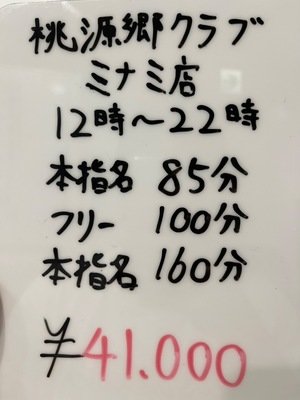 桃源郷クラブ
ミナミ店
12時～22時
本指名 85分
フリー 100分
本指名 160分
¥41.000